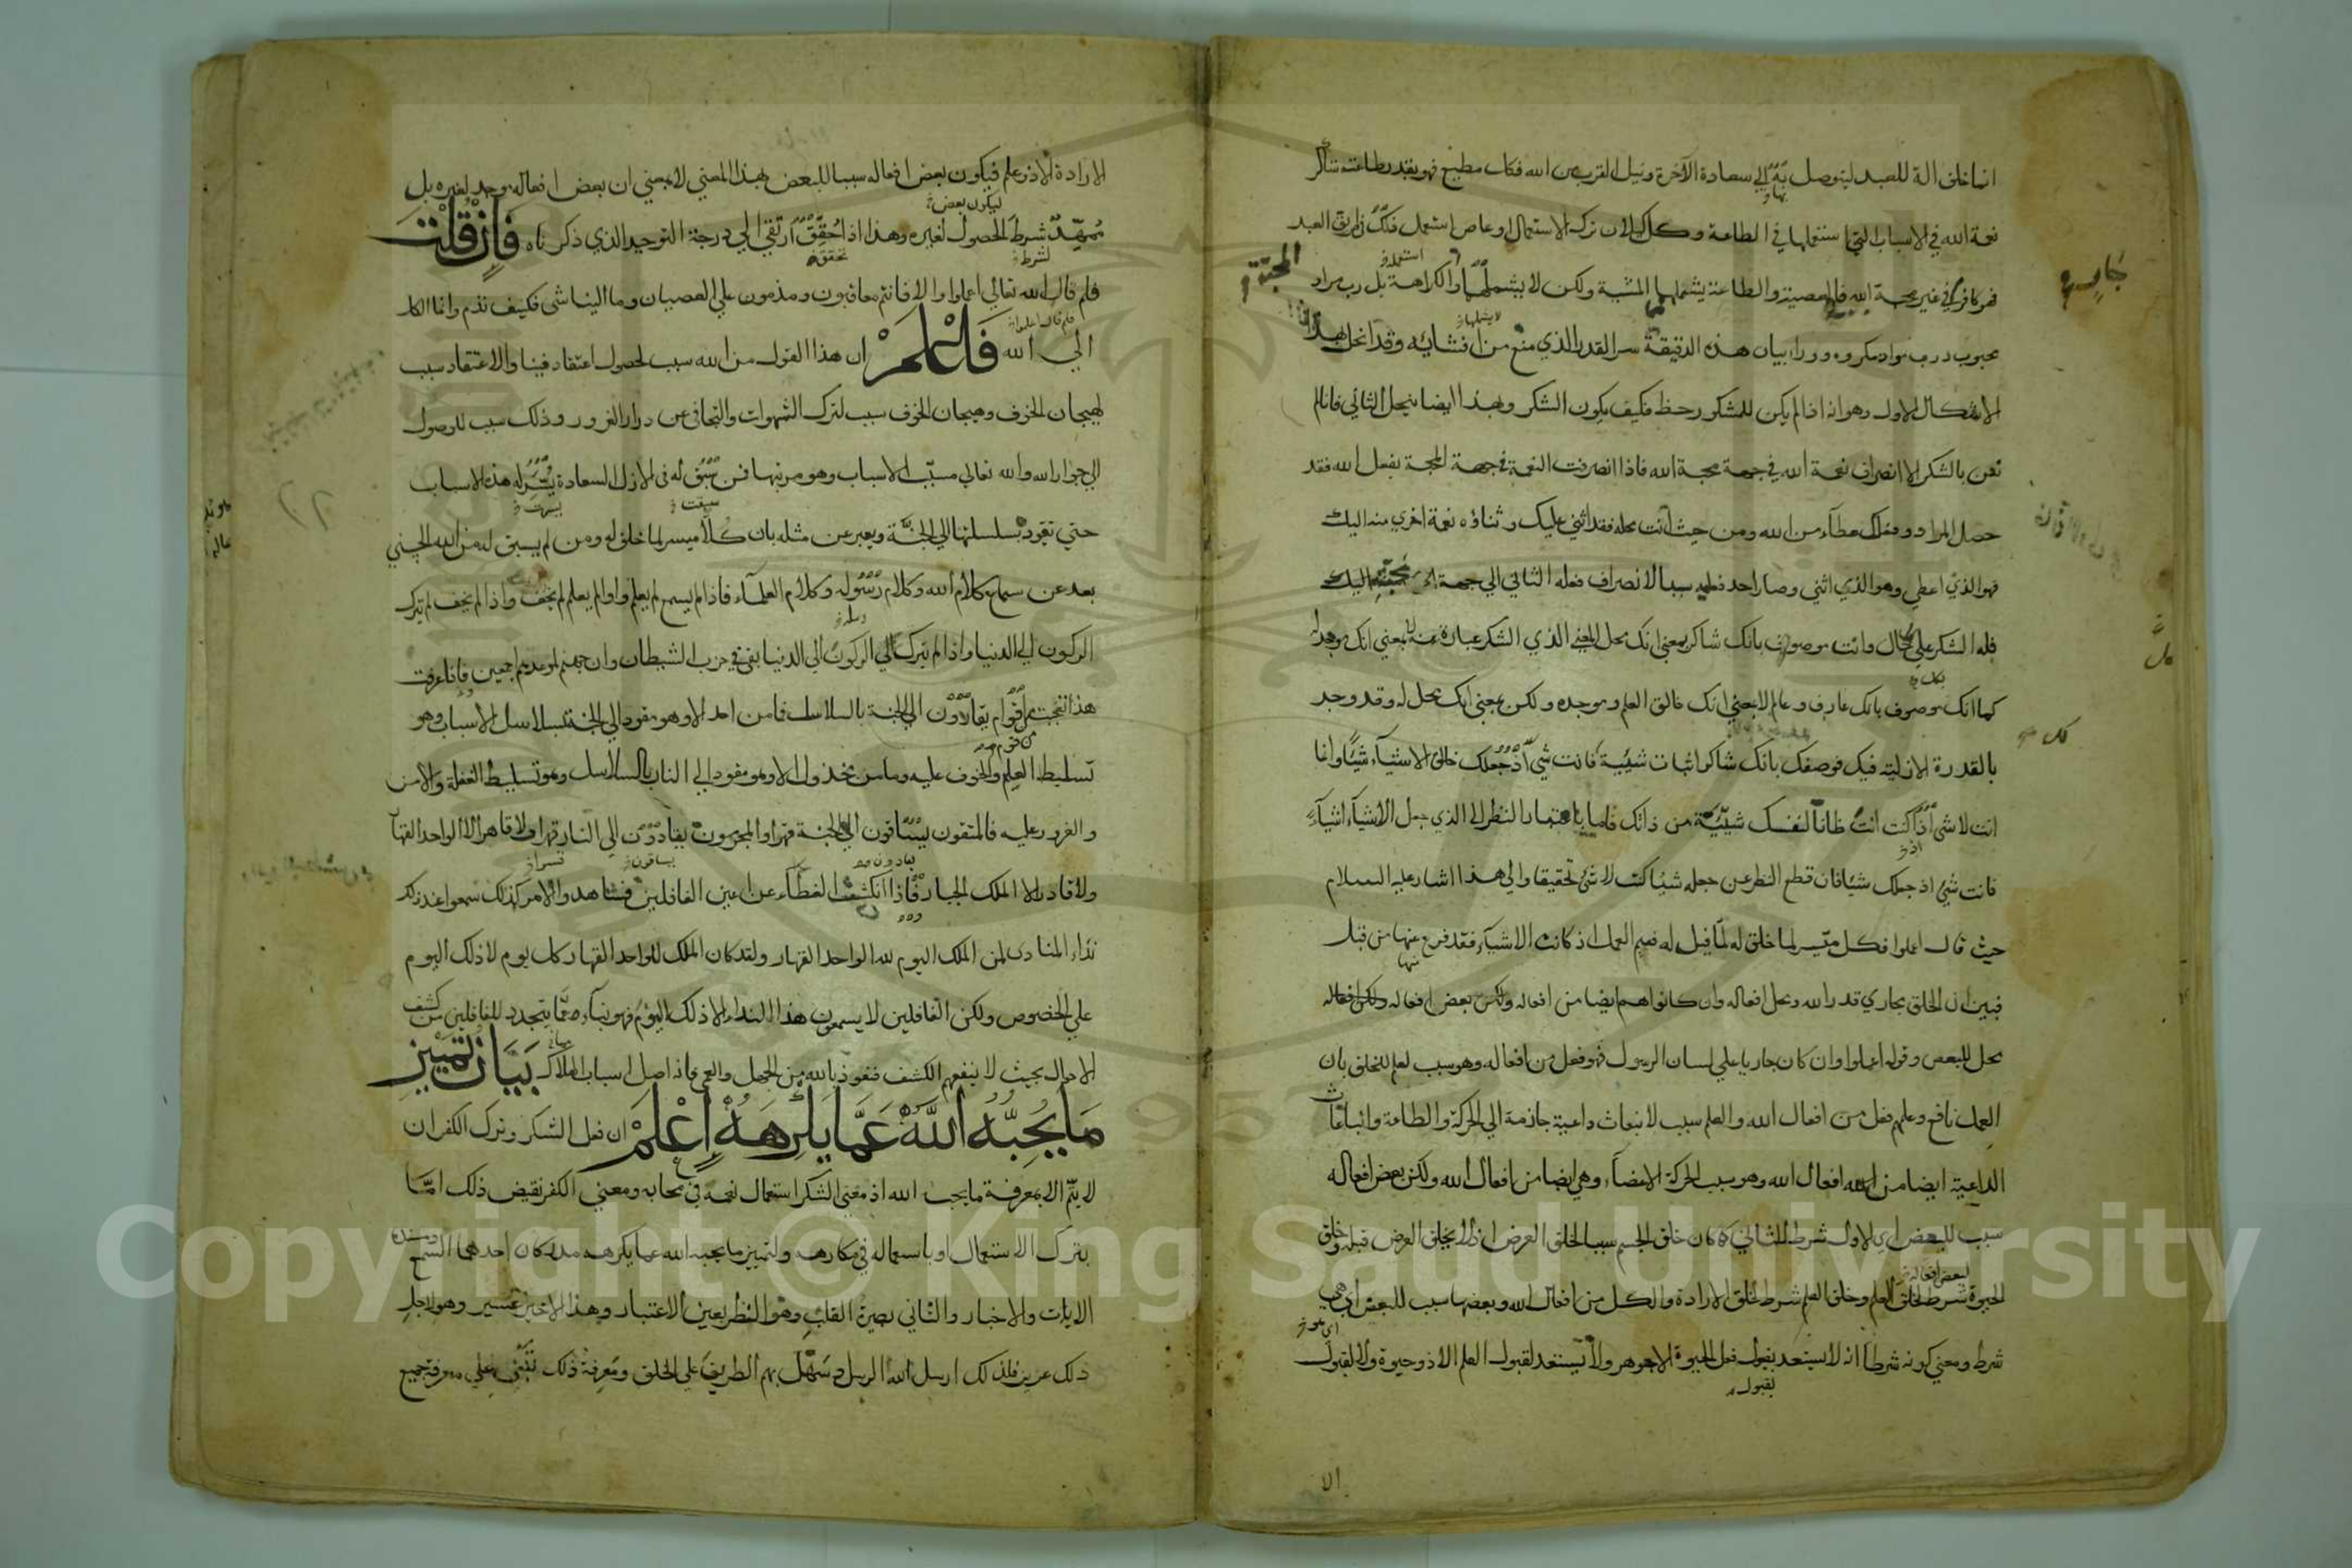 انما خلق الة للعبد ليتوصل به الي سعادة الآخرة ونيل القرب من الله فكل مطيع فهو بقدر طاعته شاكر
نعمة الله في الاسباب التي استعملها في الطاعة وكل كسلان ترك الاستعمال او عاص استعمل في طريق البعد
فهو كافر في غير محبة الله فالمعصية والطاعة يشملهما المشية ولكن لا يشملهما المحبة والكراهة بل رب مراد
محبوب ورب مراد مكروه ووراء بيان هذه الدقيقة سر القدر الذي منع من افشائه وقد انحل بهذا
الاشكال الاول وهو انه اذا لم يكن للمشكور حظ فكيف يكون الشكر وبهذا ايضا ينحل الثاني فانا لم
نعن بالشكر الا انصراف نعمة الله في جهة محبة الله فاذا انصرفت النعمة في جهة المحبة بفعل الله فقد
حصل المراد وفعلك عطاء من الله ومن حيث انت محله فقد اثني عليك وثناؤه نعمة اخري منه اليك
فهو الذي اعطي وهو الذي اثني وصار احد فعليه سببا لانصراف فعله الثاني الي جهة محبته
فله الشكر علي كل حال وانت موصوف بانك شاكر بمعني انك محل المعني الذي الشكر عبارة عنه لا بمعني انك موجد له
كما انك موصوف بانك عارف وعالم لا بمعني انك خالق العلم وموجده ولكن بمعني انك محل له وقد وجد
بالقدرة الازلية فيك فوصفك بانك شاكر اثبات شيئية فانت شي اذ جعلك خالق الاشياء شيئا وانما
انت لا شي اذا كنت انت ظانا لنفسك شيئية من ذاتك فاما باعتبار النظر الا الذي جعل الاشياء اشياء
فانت شي اذ جعلك شيئا فان قطع النظر عن جعله شيئا كنت لا شي تحقيقا والي هذا اشار عليه السلام
حيث قال اعملوا فكل ميسر لما خلق له لما قيل له ففيم العمل اذ كانت الاشياء فقد فرغ منها من قبل
فبين ان الخلق مجاري قدر الله ومحل افعاله وان كانوا هم ايضا من افعاله ولكن بعض افعاله
محل للبعض وقوله اعملوا وان كان جاريا علي لسان الرسول فهو فعل من افعاله وهو سبب لعلم الخلق بان
العمل نافع وعلمهم فعل من افعال الله والعلم سبب لانبعاث داعية جازمة الي الحركة والطاعة وانبعاث
الداعية ايضا من افعال الله وهو سبب لحركة الاعضاء وهي ايضا من افعال الله ولكن بعض افعاله
سبب للبعض اي الاول شرط للثاني كما كان خلق الجسم سببا لخلق العرض اذ لا يخلق العرض قبله وخلق
الحيوة شرط لخلق العلم وخلق العلم شرط لخلق الارادة والكل من افعال الله وبعضها سبب للبعض اي هي
شرط ومعني كونه شرطا انه لا يستعد لقبول فعل الحيوة الا جوهر ولا يستعد لقبول العلم الا ذو حيوة ولا لقبول
الا
الارادة الا ذو علم فيكون بعض افعاله سببا للبعض بهذا المعني لا بمعني ان بعض افعاله موجد لغيره بل
ممهد شرط الحصول لغيره وهذا اذا حقق ارتقي الي درجة التوحيد الذي ذكرناه فان قلت
فلم قال الله تعالي اعملوا والا فانتم معاقبون ومذمون علي العصيان وما الينا شي فكيف نذم وانما الكل
الي الله فاعلم ان هذا القول من الله سبب لحصول اعتقاد فينا والاعتقاد سبب
لهيجان الخوف وهيجان الخوف سبب لترك الشهوات والتجافي عن دار الغرور وذلك سبب للوصول
الي جوار الله والله تعالي مسبب الاسباب وهو مرتبها فمن سبق له في الازل السعادة يسر له هذه الاسباب
حتي تقوده بسلسلتها الي الجنة ويعبر عن مثله بان كلا ميسر لما خلق له ومن لم يسبق له من الله الحسني
بعد عن سماع كلام الله وكلام رسوله وكلام العلماء فاذا لم يسمع لم يعلم واذا لم يعلم لم يخف واذا لم يخف لم يترك
الركون الي الدنيا واذا لم يترك الركون الي الدنيا بقي في حزب الشيطان وان جهنم لموعدهم اجمعين فاذا عرفت
هذا تعجبت من اقوام يقادون الي الجنة بالسلاسل فما من احد الا وهو مقود الي الجنة بسلاسل الاسباب وهو
تسليط العلم والخوف عليه وما من مخذول الا وهو مقود الي النار بالسلاسل وهو تسليط الغفلة والامن
والغرور عليه فالمتقون يساقون الي الجنة قهرا والمجرمون يقادون الي النار قهرا ولا قاهر الا الواحد القهار
ولا قادر الا الملك الجبار فاذا انكشف الغطاء عن اعين الغافلين فشاهدوا الامر كذلك سمعوا عند ذلك
نداء المنادي لمن الملك اليوم لله الواحد القهار ولقد كان الملك للواحد القهار كل يوم لا ذلك اليوم
علي الخصوص ولكن الغافلين لا يسمعون هذا النداء الا ذلك اليوم فهو نباء عما يتجدد للغافلين من كشف
الاحوال بحيث لا ينفعهم الكشف فنعوذ بالله من الجهل والعمي فانه اصل اسباب الهلاك بيان تمييز
ما يحبه الله عما يكرهه اعلم ان فعل الشكر وترك الكفران
لا يتم الا بمعرفة ما يحب الله اذ معني الشكر استعمال نعمه في محابه ومعني الكفر نقيض ذلك اما
بترك الاستعمال او باستعماله في مكارهه ولتمييز ما يحبه الله عما يكرهه مدركان احدهما السمع
الايات والاخبار والثاني بصيرة القلب وهو النظر بعين الاعتبار وهذا الاخير عسير وهو لاجل
ذلك عزيز فلذلك ارسل الله الرسل وسهل بهم الطريق علي الخلق ومعرفة ذلك تنبني علي معرفة جميع
Copyright © King Saud University